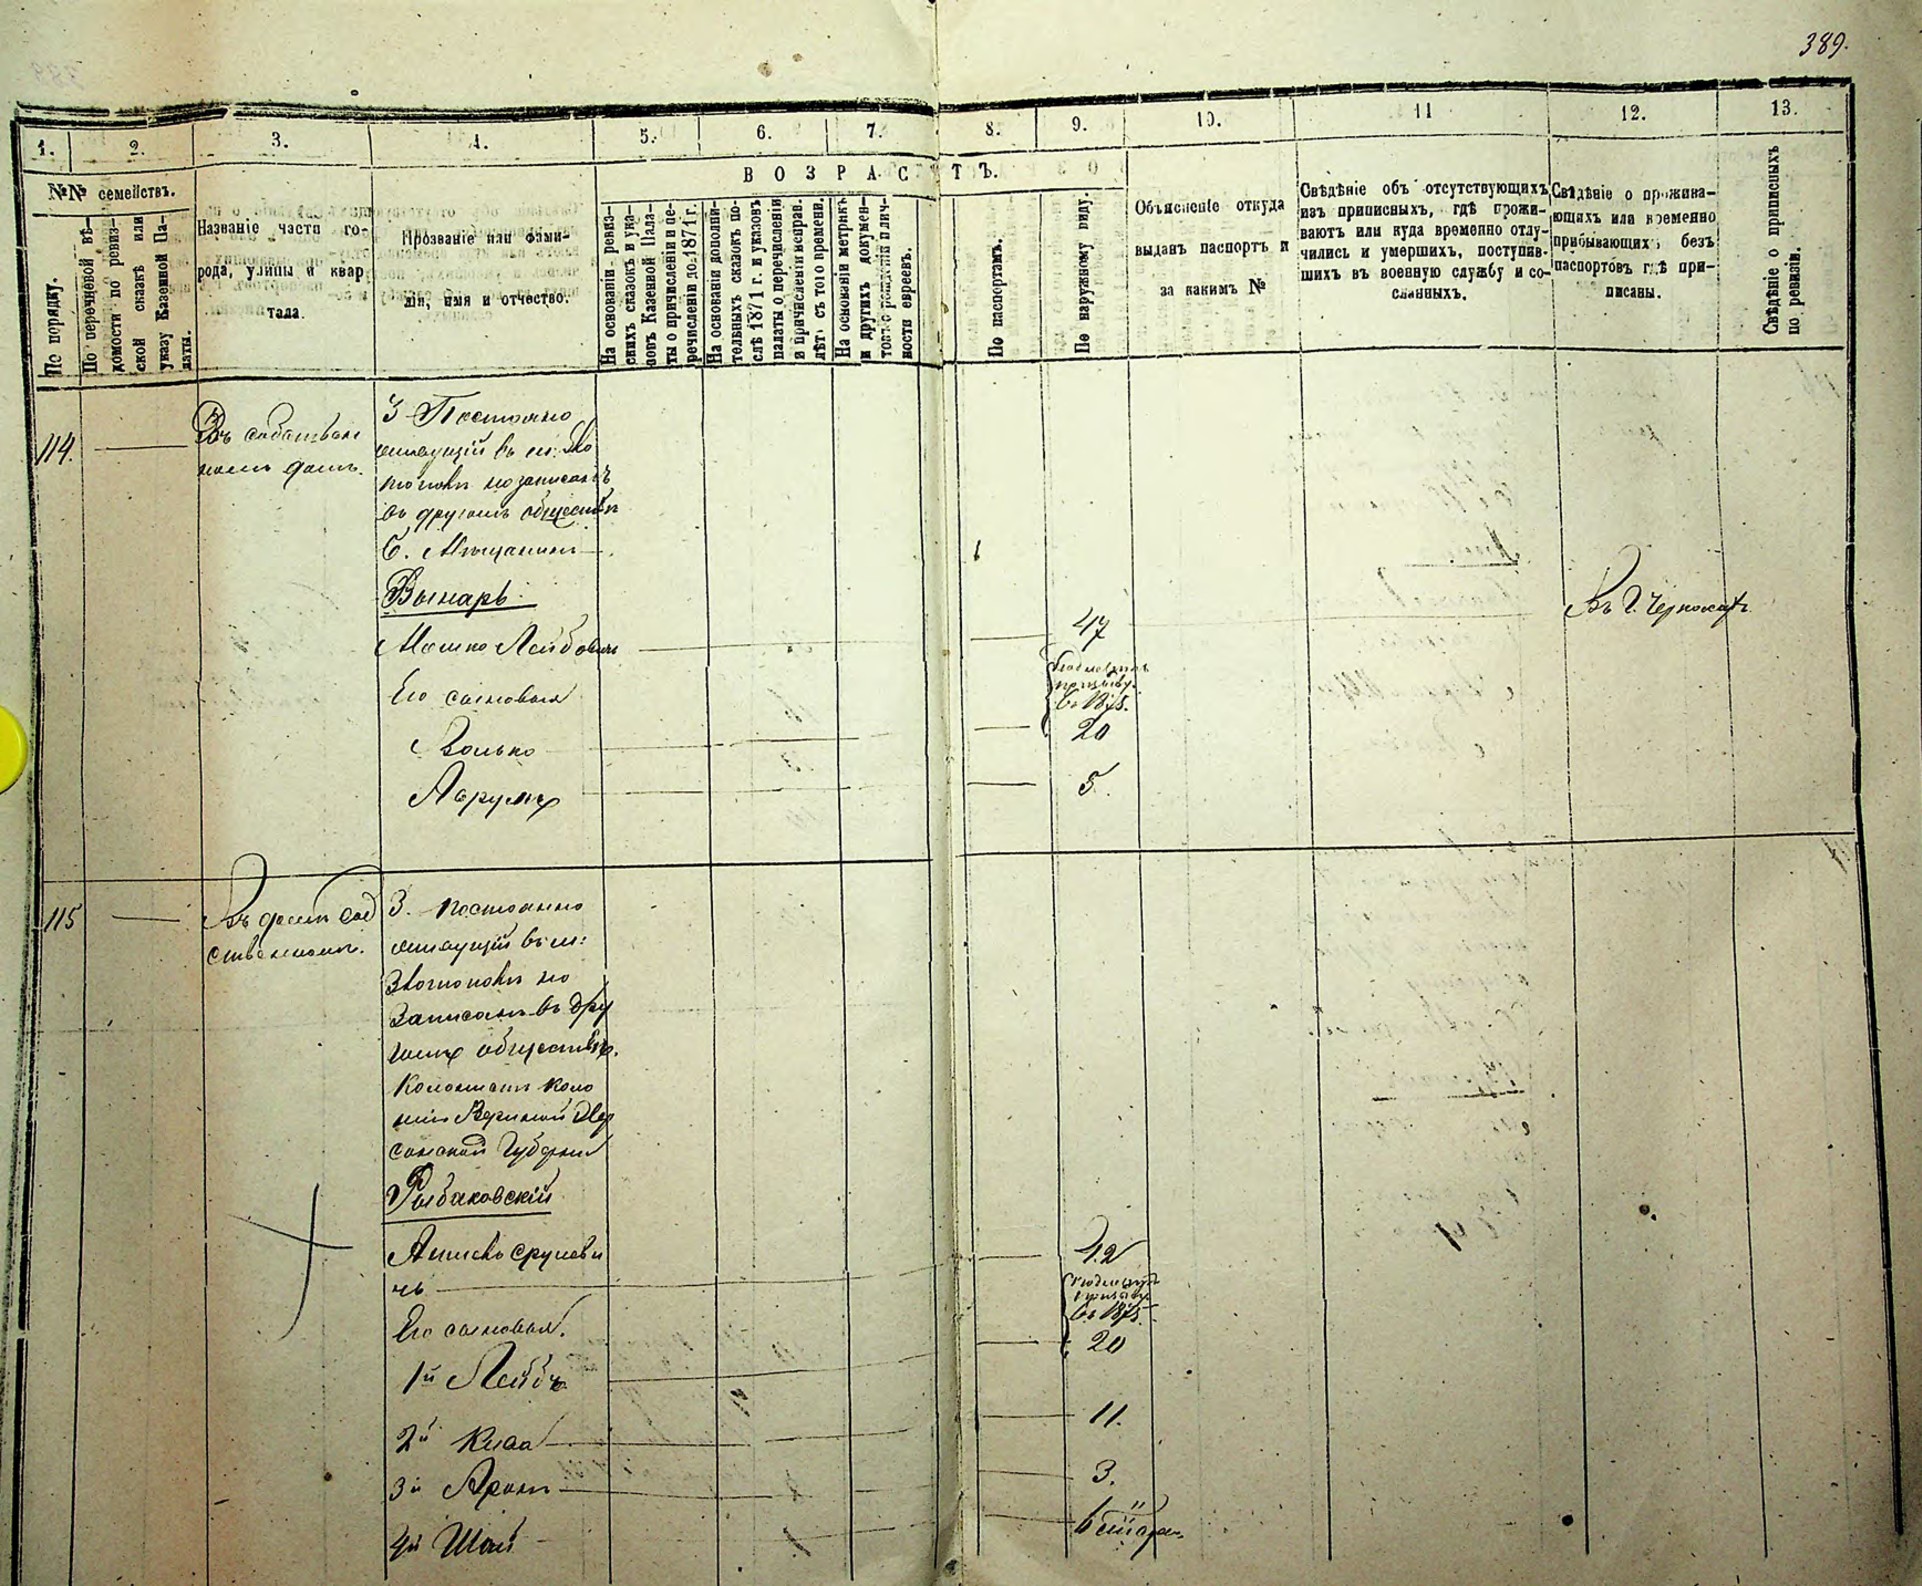 389.
1.
2.
3.
4.
5.
6.
7.
8.
9.
10.
11
12.
13.
№№ семействъ.
По порядку.
По перечневой вѣ-
домости по ревиз-
ской сказкѣ или
указу Казенной Па-
латы.
Названіе части го-
рода, улицы и квар
тала.
Прозваніе или фами-
лія, имя и отчество.
ВОЗРАСТЪ.
На основаніи ревиз-
скихъ сказокъ и ука-
зовъ Казенной Пала-
ты о причисленіи и пе-
речисленіи до 1871 г.
На основаніи дополни-
тельныхъ сказокъ по-
слѣ 1871 г. и указовъ
палаты о перечисленіи
и причисленіи исправ.
лѣтъ съ того времени.
На основаніи метрикъ
и другихъ докумен-
ности евреевъ.
По паспортамъ.
По наружному виду.
Объясненіе откуда
выданъ паспортъ и
за какимъ №
Свѣдѣніе объ отсутствующихъ
изъ приписныхъ, гдѣ прожи-
ваютъ или куда временно отлу-
чились и умершихъ, поступив-
шихъ въ военную службу и со-
сланныхъ.
Свѣдѣніе о прожива-
ющихъ или временно
прибывающихъ безъ
паспортовъ гдѣ при-
писаны.
Свѣдѣніе о приписныхъ
по ревизіи.
114.
Въ собствен
номъ домѣ.
3 Постояно
живущій въ м.
но записанъ
въ другомъ обществѣ
б. Мѣщанинъ
Вынарь
Мошко Лейбовичъ
47
Его сыновья
подлежитъ
призыву
въ 1875.
Волько
20
5.
115
Въ домѣ соб
ственномъ.
3. постоянно
живущій въ м:
но
записанъ въ дру
гомъ обществѣ.
Колонистъ коло
ніи Хер
сонской Губерніи
Рыбаковскій
Срулеви
чь
42
подлежитъ
призыву
въ 1875.
Его сыновья.
20
1й Лейбъ
2й
11.
3й Аронъ
3.
4й